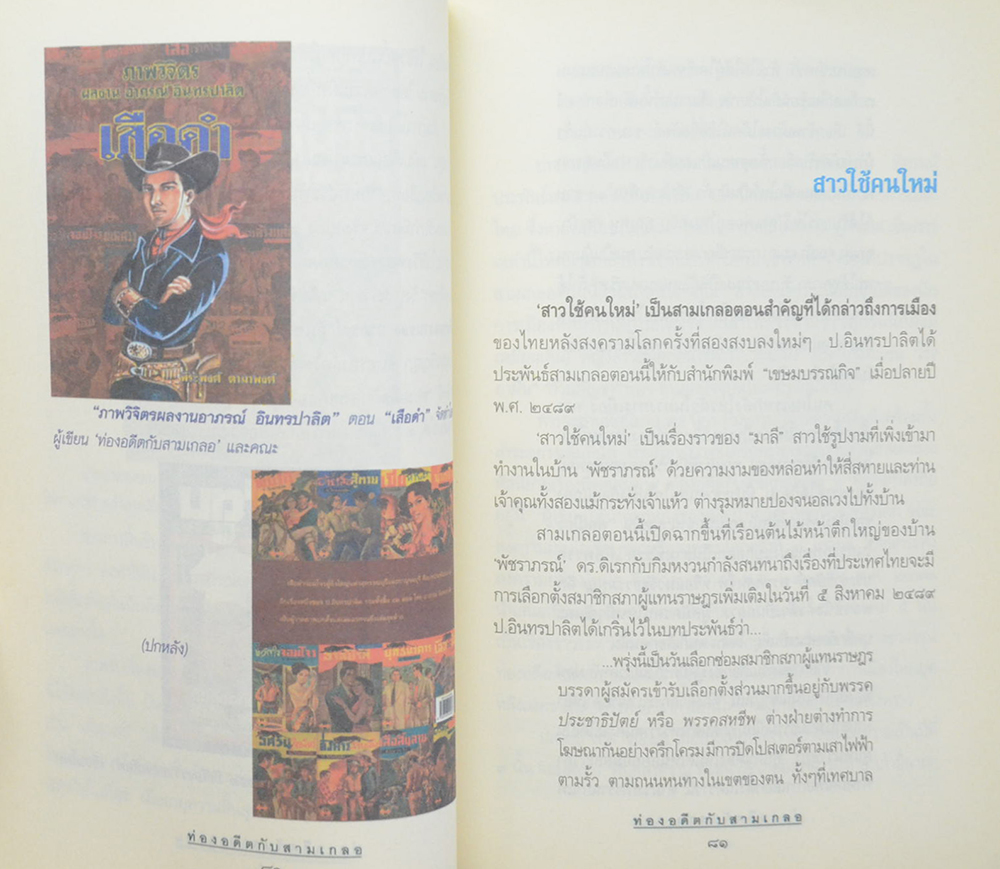 ภาพวิจิตร
ผลงาน อาภรณ์ อินทรปาลิต
เสือดำ
"ภาพวิจิตรผลงานอาภรณ์ อินทรปาลิต" ตอน "เสือดำ"
ผู้เขียน 'ท่องอดีตกับสามเกลอ' และคณะ
(ปกหลัง)
ท่องอดีตกับสามเกลอ
สาวใช้คนใหม่
'สาวใช้คนใหม่' เป็นสามเกลอตอนสำคัญที่ได้กล่าวถึงการเมือง
ของไทยหลังสงครามโลกครั้งที่สองสงบลงใหม่ๆ ป.อินทรปาลิตได้
ประพันธ์สามเกลอตอนนี้ให้กับสำนักพิมพ์ "เขษมบรรณกิจ" เมื่อปลายปี
พ.ศ. ๒๔๘๙
'สาวใช้คนใหม่' เป็นเรื่องราวของ "มาลี" สาวใช้รูปงามที่เพิ่งเข้ามา
ทำงานในบ้าน 'พัชราภรณ์' ด้วยความงามของหล่อนทำให้สี่สหายและท่าน
เจ้าคุณทั้งสองแม้กระทั่งเจ้าแห้ว ต่างรุมหมายปองจนอลเวงไปทั้งบ้าน
สามเกลอตอนนี้เปิดฉากขึ้นที่เรือนต้นไม้หน้าตึกใหญ่ของบ้าน
'พัชราภรณ์' ดร.ดิเรกกับกิมหงวนกำลังสนทนาถึงเรื่องที่ประเทศไทยจะมี
การเลือกตั้งสมาชิกสภาผู้แทนราษฎรเพิ่มเติมในวันที่ ๕ สิงหาคม ๒๔๘๙
ป.อินทรปาลิตได้เกริ่นไว้ในบทประพันธ์ว่า...
...พรุ่งนี้เป็นวันเลือกซ่อมสมาชิกสภาผู้แทนราษฎร
บรรดาผู้สมัครเข้ารับเลือกตั้งส่วนมากขึ้นอยู่กับพรรค
ประชาธิปัตย์ หรือ พรรคสหชีพ ต่างฝ่ายต่างทำการ
โฆษณากันอย่างครึกโครม มีการปิดโปสเตอร์ตามเสาไฟฟ้า
ตามรั้ว ตามถนนหนทางในเขตของตน ทั้งๆที่เทศบาล
ท่องอดีตกับสามเกลอ
๘๑